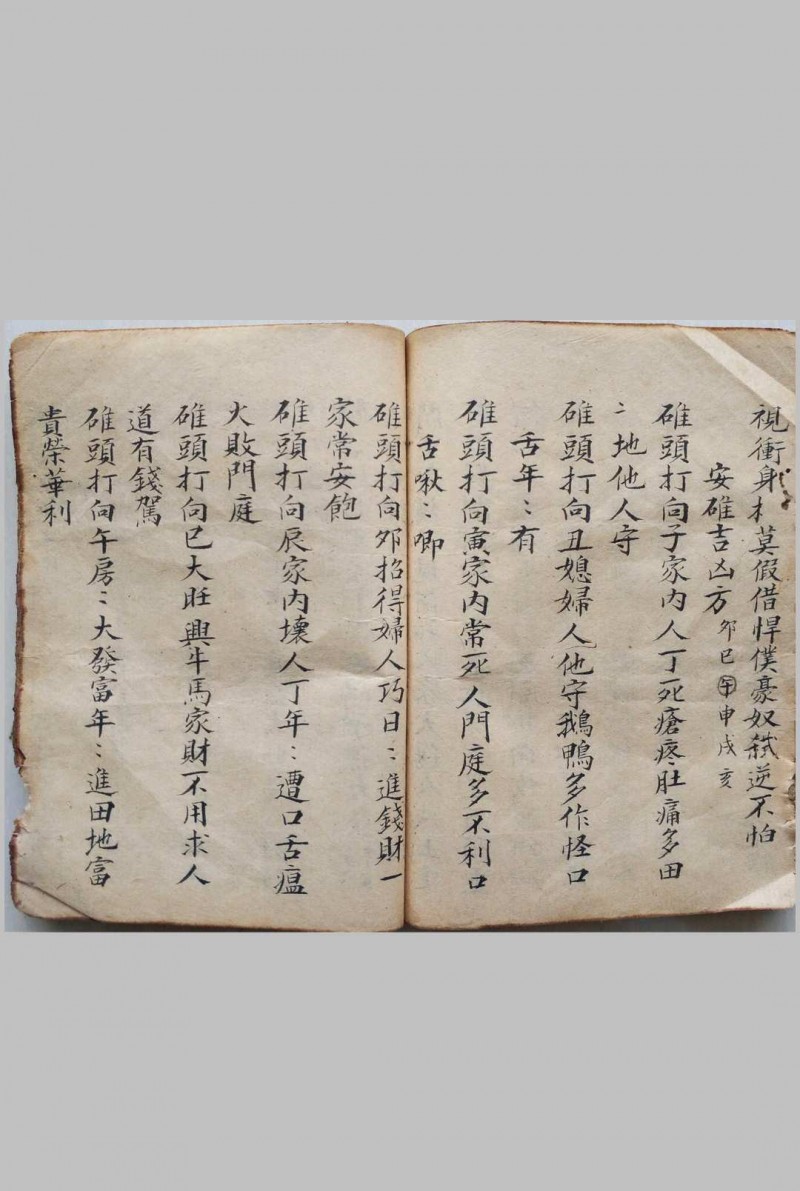 視衝身才莫假借悍僕豪奴弒逆不怕
安碓吉凶方 卯巳午申戌亥
碓頭打向子家内人丁死瘡疼肚痛多田
〻地他人守
碓頭打向丑媳婦人他守鵝鴨多作怪口
舌年〻有
碓頭打向寅家内常死人門庭多不利口
舌啾〻唧
碓頭打向卯招得婦人巧日〻進錢財一
家常安飽
碓頭打向辰家内壞人丁年〻遭口舌瘟
火敗門庭
碓頭打向巳大旺興牛馬家財不用求人
道有錢駕
碓頭打向午房〻大發富年〻進田地富
貴榮華利